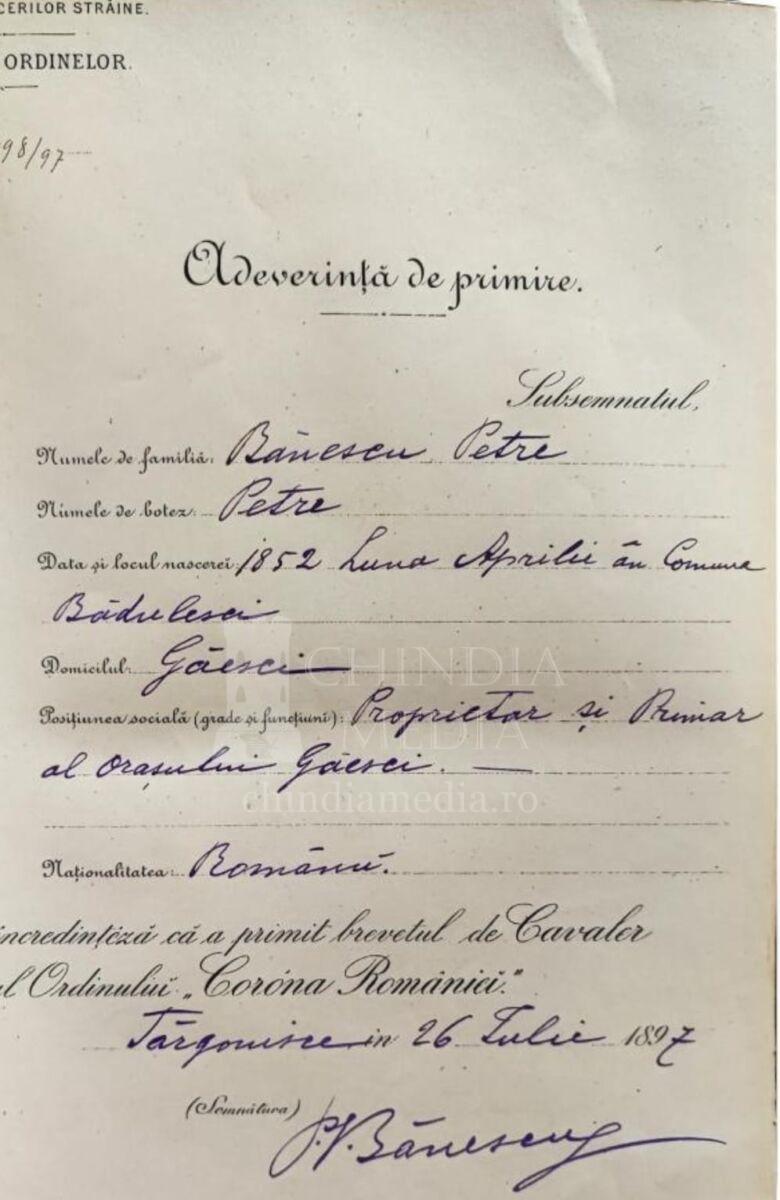 CERILOR STRĂINE.
ORDINELOR.
98/97
Adeverință de primire.
Subsemnatul,
Numele de familiă: Bănescu Petre
Numele de botez: Petre
Data și locul nascereĭ: 1852 Luna Aprilie în Comuna
Bădulesci
Domiciliul: Găesci
CHINDIA
Pozițiunea socială (grade și funcțiunĭ): Proprietar și Primar
MEDIA
al orașului Găesci.
chindiamedia.ro
Naționalitatea: Română.
încredințéză că a primit brevetul de Cavaler
al Ordinuluĭ „Coróna Românieĭ."
Târgoviște in 26 Iulie 1897
(Semnătura)
P.V. Bănescu